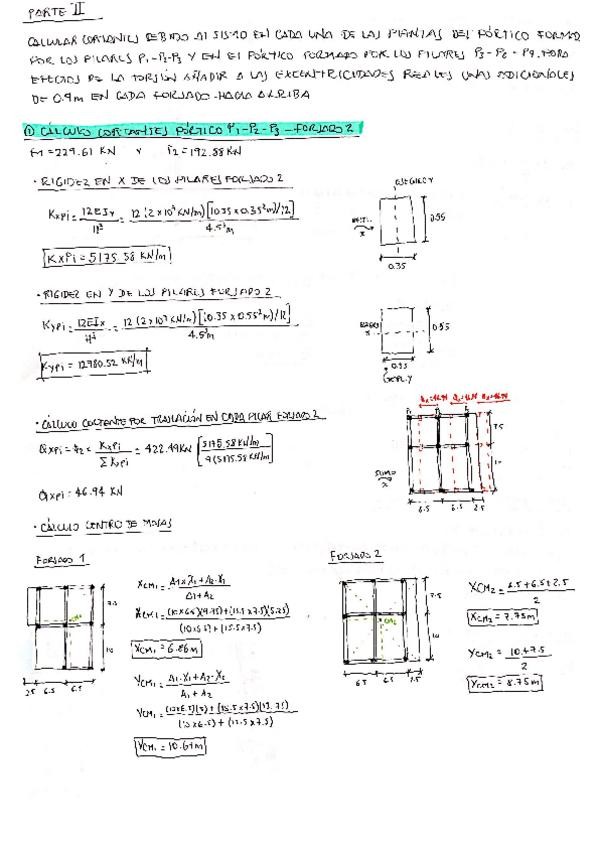 PARTE II
CALCULAR CORTANTES DEBIDO AL SISMO EN CADA UNA DE LAS PLANTAS DEL PÓRTICO FORMADO
POR LOS PILARES P1-P2-P3 Y EN EL PÓRTICO FORMADO POR LOS PILARES P3-P6-P9. PARA
EFECTOS DE LA TORSIÓN AÑADIR A LAS EXCENTRICIDADES REALES UNAS ADICIONALES
DE 0.9m EN CADA FORJADO HACIA ARRIBA
① CÁLCULO CORTANTES PÓRTICO P1-P2-P3 - FORJADO 2
F1=229.61 KN Y F2=192.88KN
• RIGIDEZ EN X DE LOS PILARES FORJADO 2
KxPi = 12EIy / H³ = 12(2x10⁷ KN/m)[(0.55x0.35³m)/12] / 4.5³m
KxPi = 5175.58 KN/m
0.55
0.35
• RIGIDEZ EN Y DE LOS PILARES FORJADO 2
KyPi = 12EIx / H³ = 12(2x10⁷ KN/m)[(0.35x0.55³m)/12] / 4.5³m
KyPi = 12780.52 KN/m
0.55
0.35
• CÁLCULO CORTANTE POR TRASLACIÓN EN CADA PILAR FORJADO 2
QxPi = F2 · KxPi / ΣKxPi = 422.49KN [5175.58KN/m / 9(5175.58KN/m)]
QxPi = 46.94 KN
SISMO
X
7.5
10
6.5 6.5 2.5
• CÁLCULO CENTRO DE MASAS
FORJADO 1
XCM1 = A1·X1+A2·X2 / A1+A2
XCM1 = (10x6.5)(9.75)+(15.5x7.5)(5.25) / (10x6.5)+(15.5x7.5)
XCM1 = 6.86m
YCM1 = A1·X1+A2·X2 / A1+A2
YCM1 = (10x6.5)(5)+(15.5x7.5)(13.75) / (10x6.5)+(15.5x7.5)
YCM1 = 10.61m
7.5
10
2.5 6.5 6.5
FORJADO 2
XCM2 = 6.5+6.5+2.5 / 2
XCM2 = 7.75m
YCM2 = 10+7.5 / 2
YCM2 = 8.75m
7.5
10
6.5 6.5 2.5